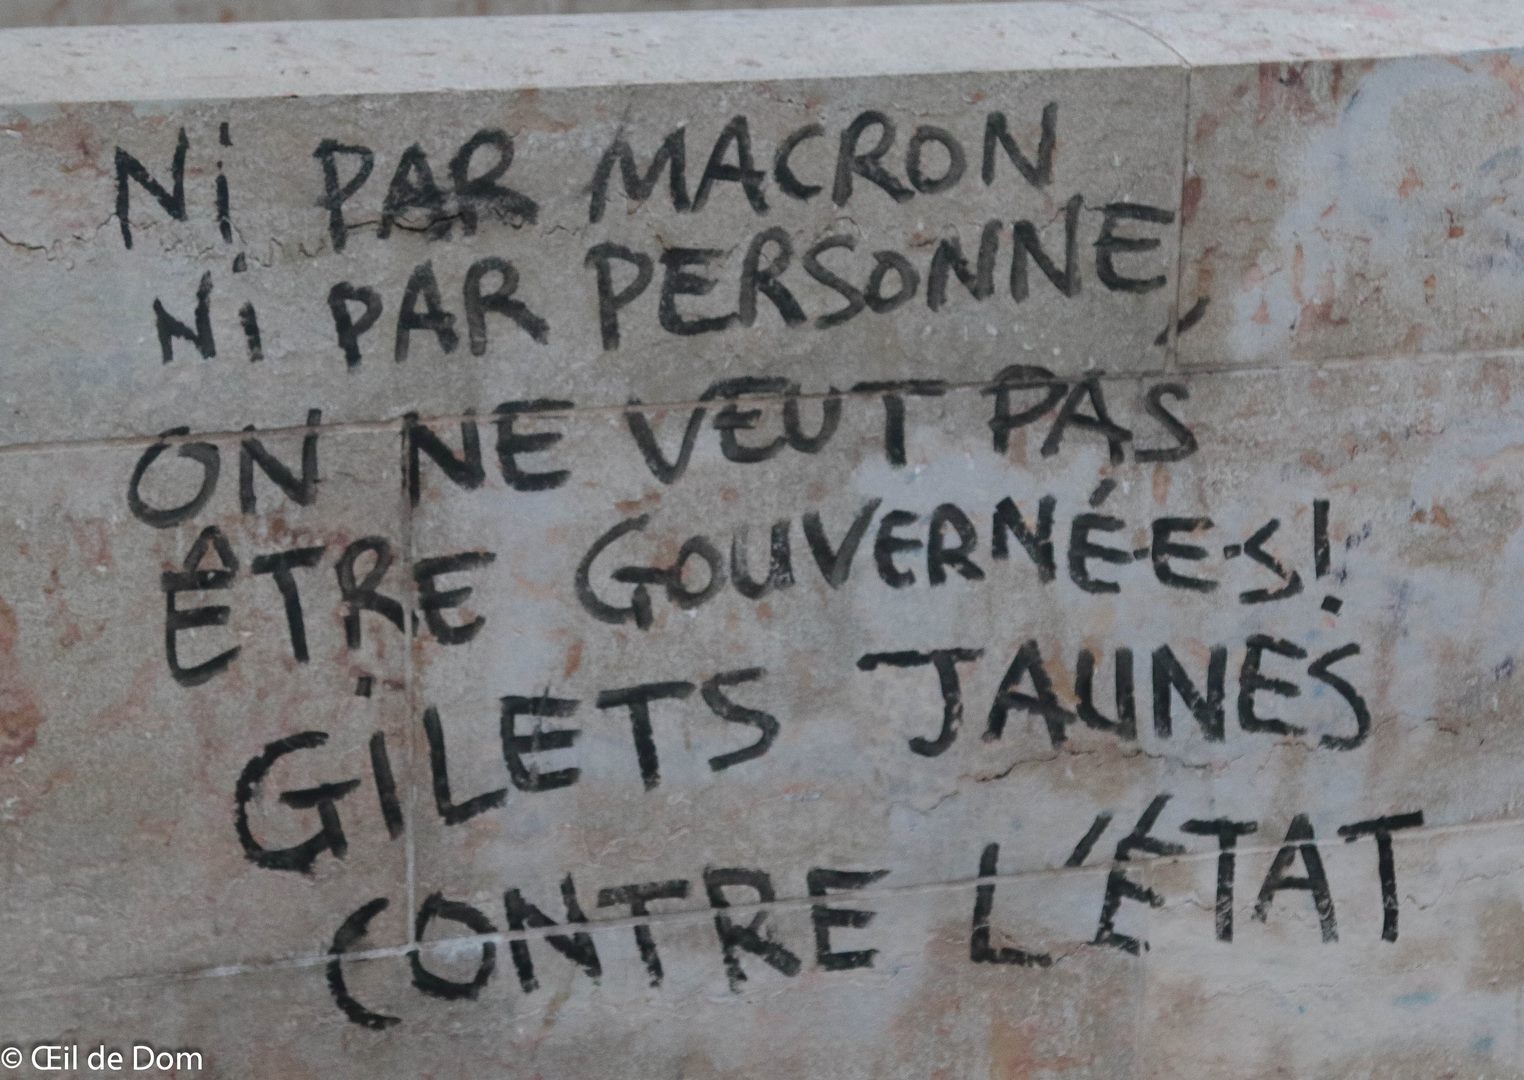 Ni PAR MACRON
Ni PAR PERSONNE,
ON NE VEUT PAS
ÊTRE GOUVERNÉ-E-S!
GiLETS JAUNES
CONTRE L'ÉTAT
© Œil de Dom